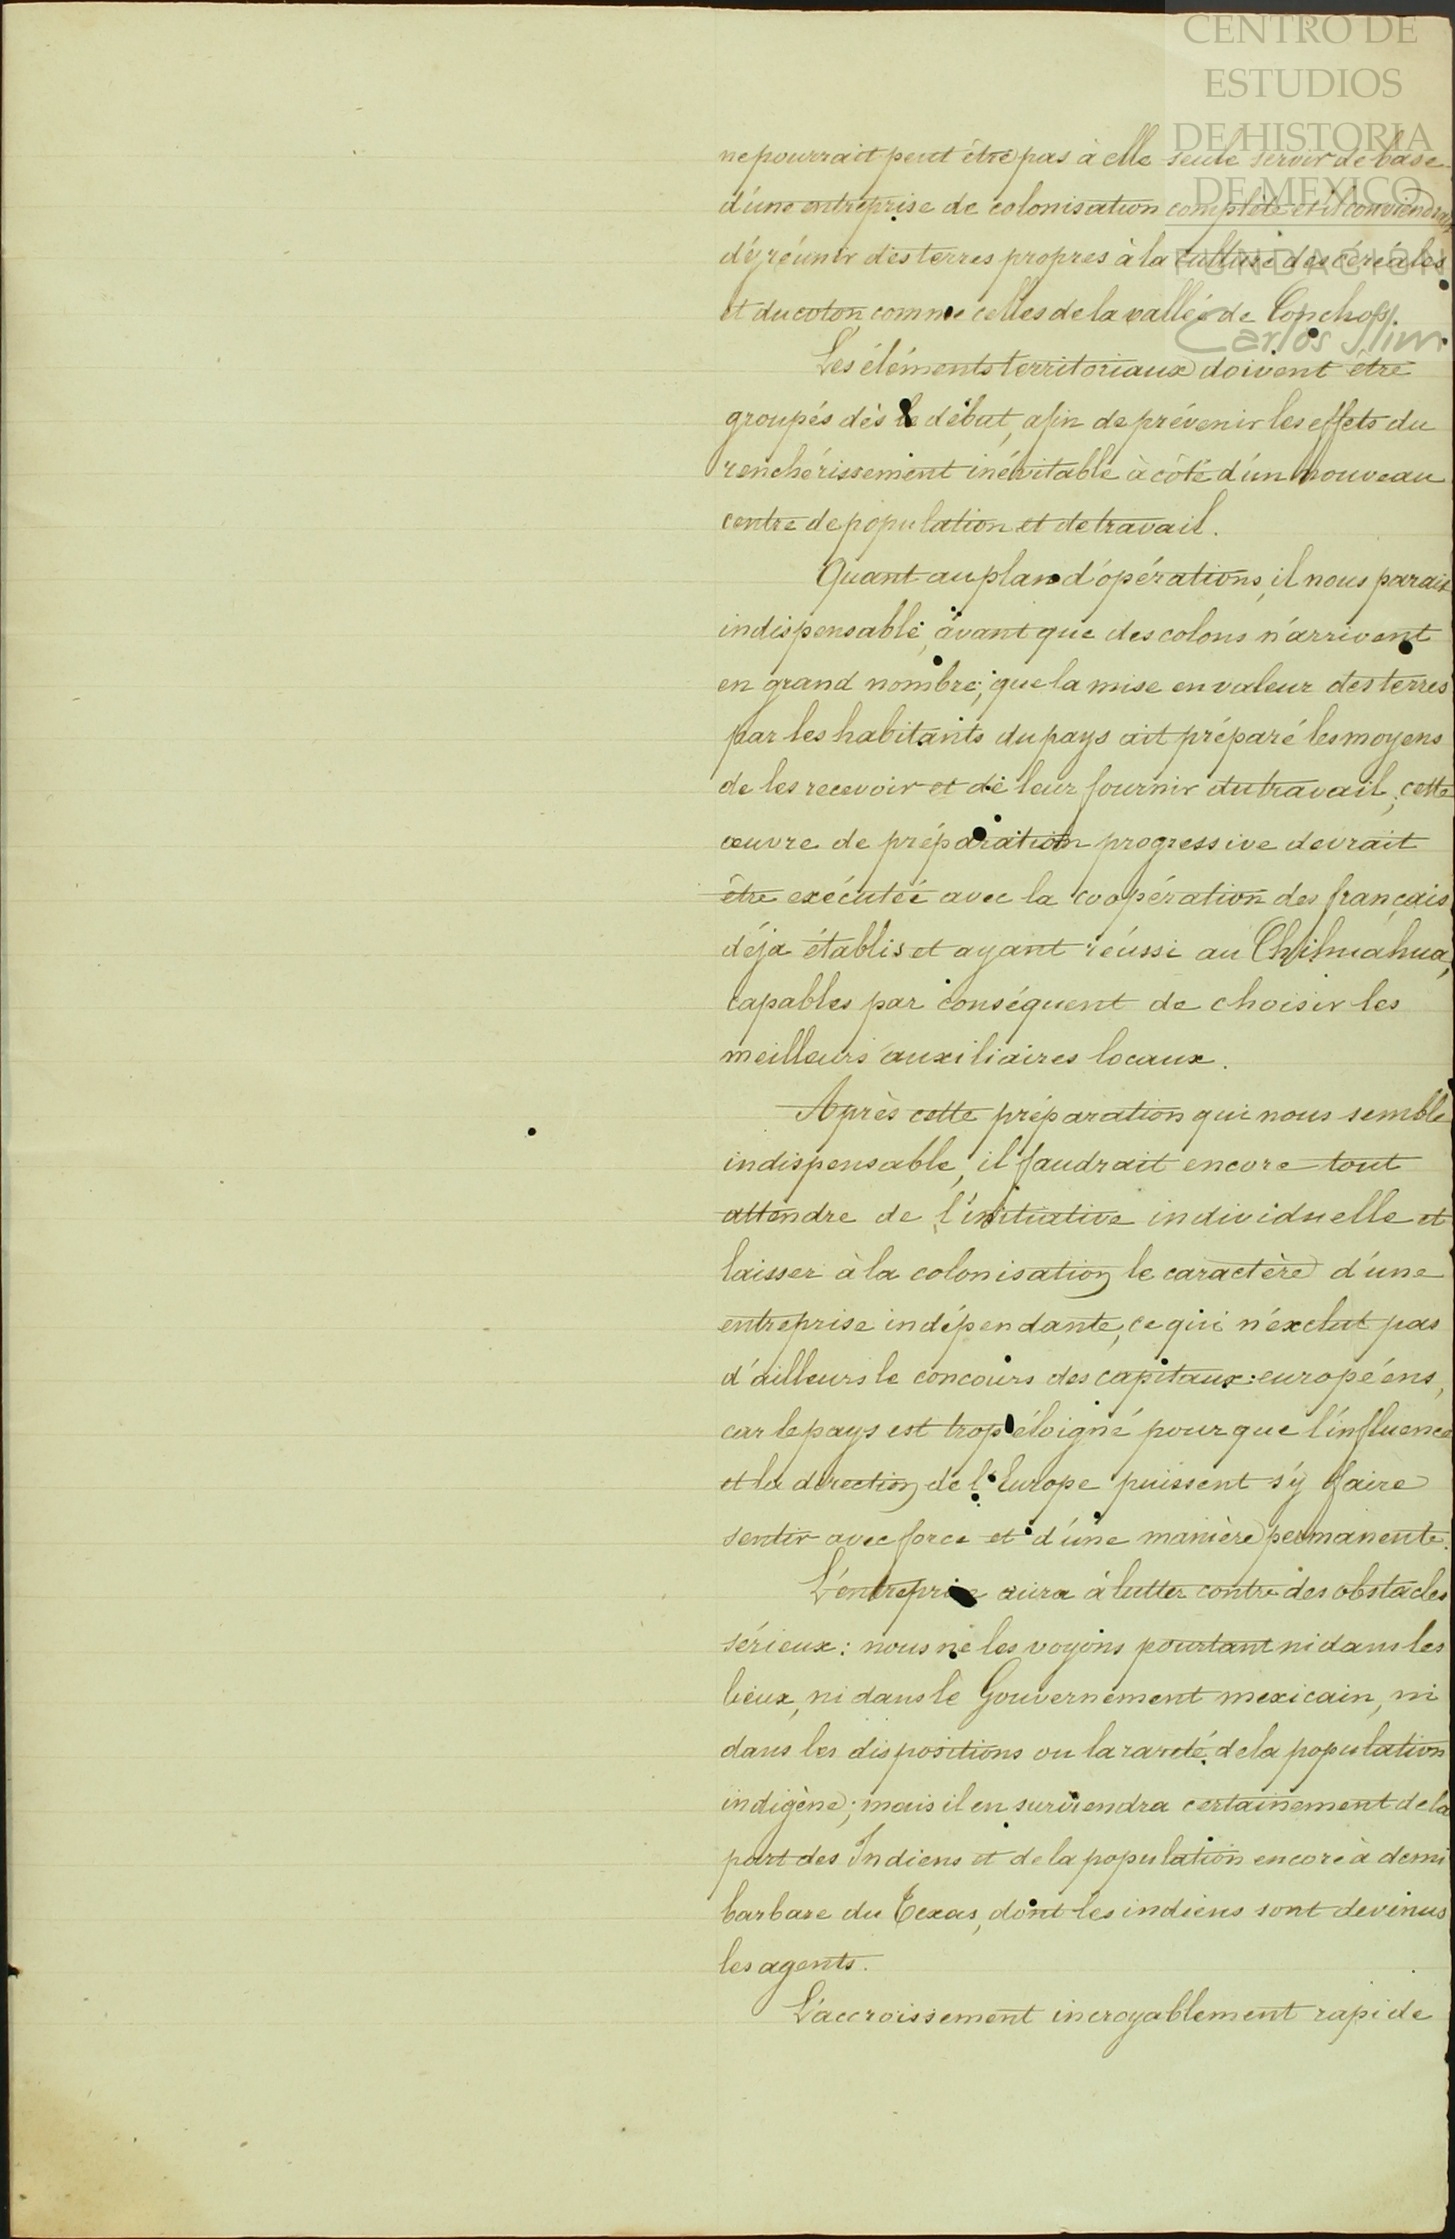 CENTRO DE
ESTUDIOS
DE HISTORIA
DE MEXICO
FUNDACIÓN
Carlos Slim
ne pourrait peut être pas à elle seule servir de base
d'une entreprise de colonisation complète et il conviendrait
d'y réunir des terres propres à la culture des céréales
et du coton, comme celles de la vallée de Conchos.
Les éléments territoriaux doivent être
groupés dès le début, afin de prévenir les effets du
renchérissement inévitable à côté d'un nouveau
centre de population et de travail.
Quant au plan d'opérations, il nous parait
indispensable, avant que des colons n'arrivent
en grand nombre, que la mise en valeur des terres
par les habitants du pays ait préparé les moyens
de les recevoir et de leur fournir du travail; cette
œuvre de préparation progressive devrait
être exécutée avec la coopération des français
déja établis et ayant réussi au Chihuahua,
capables par conséquent de choisir les
meilleurs auxiliaires locaux.
Après cette préparation qui nous semble
indispensable, il faudrait encore tout
attendre de l'initiative individuelle et
laisser à la colonisation le caractère d'une
entreprise indépendante, ce qui n'exclut pas
d'ailleurs le concours des capitaux européens,
car le pays est trop éloigné pour que l'influence
et la direction de l'Europe puissent s'y faire
sentir avec force et d'une manière permanente.
L'entreprise aura à lutter contre des obstacles
sérieux: nous ne les voyons pourtant ni dans les
lieux, ni dans le Gouvernement mexicain, ni
dans les dispositions ou la rareté de la population
indigène; mais il en surviendra certainement de la
part des Indiens et de la population encore à demi
barbare du Texas, dont les indiens sont devenus
les agents.
L'accroissement incroyablement rapide